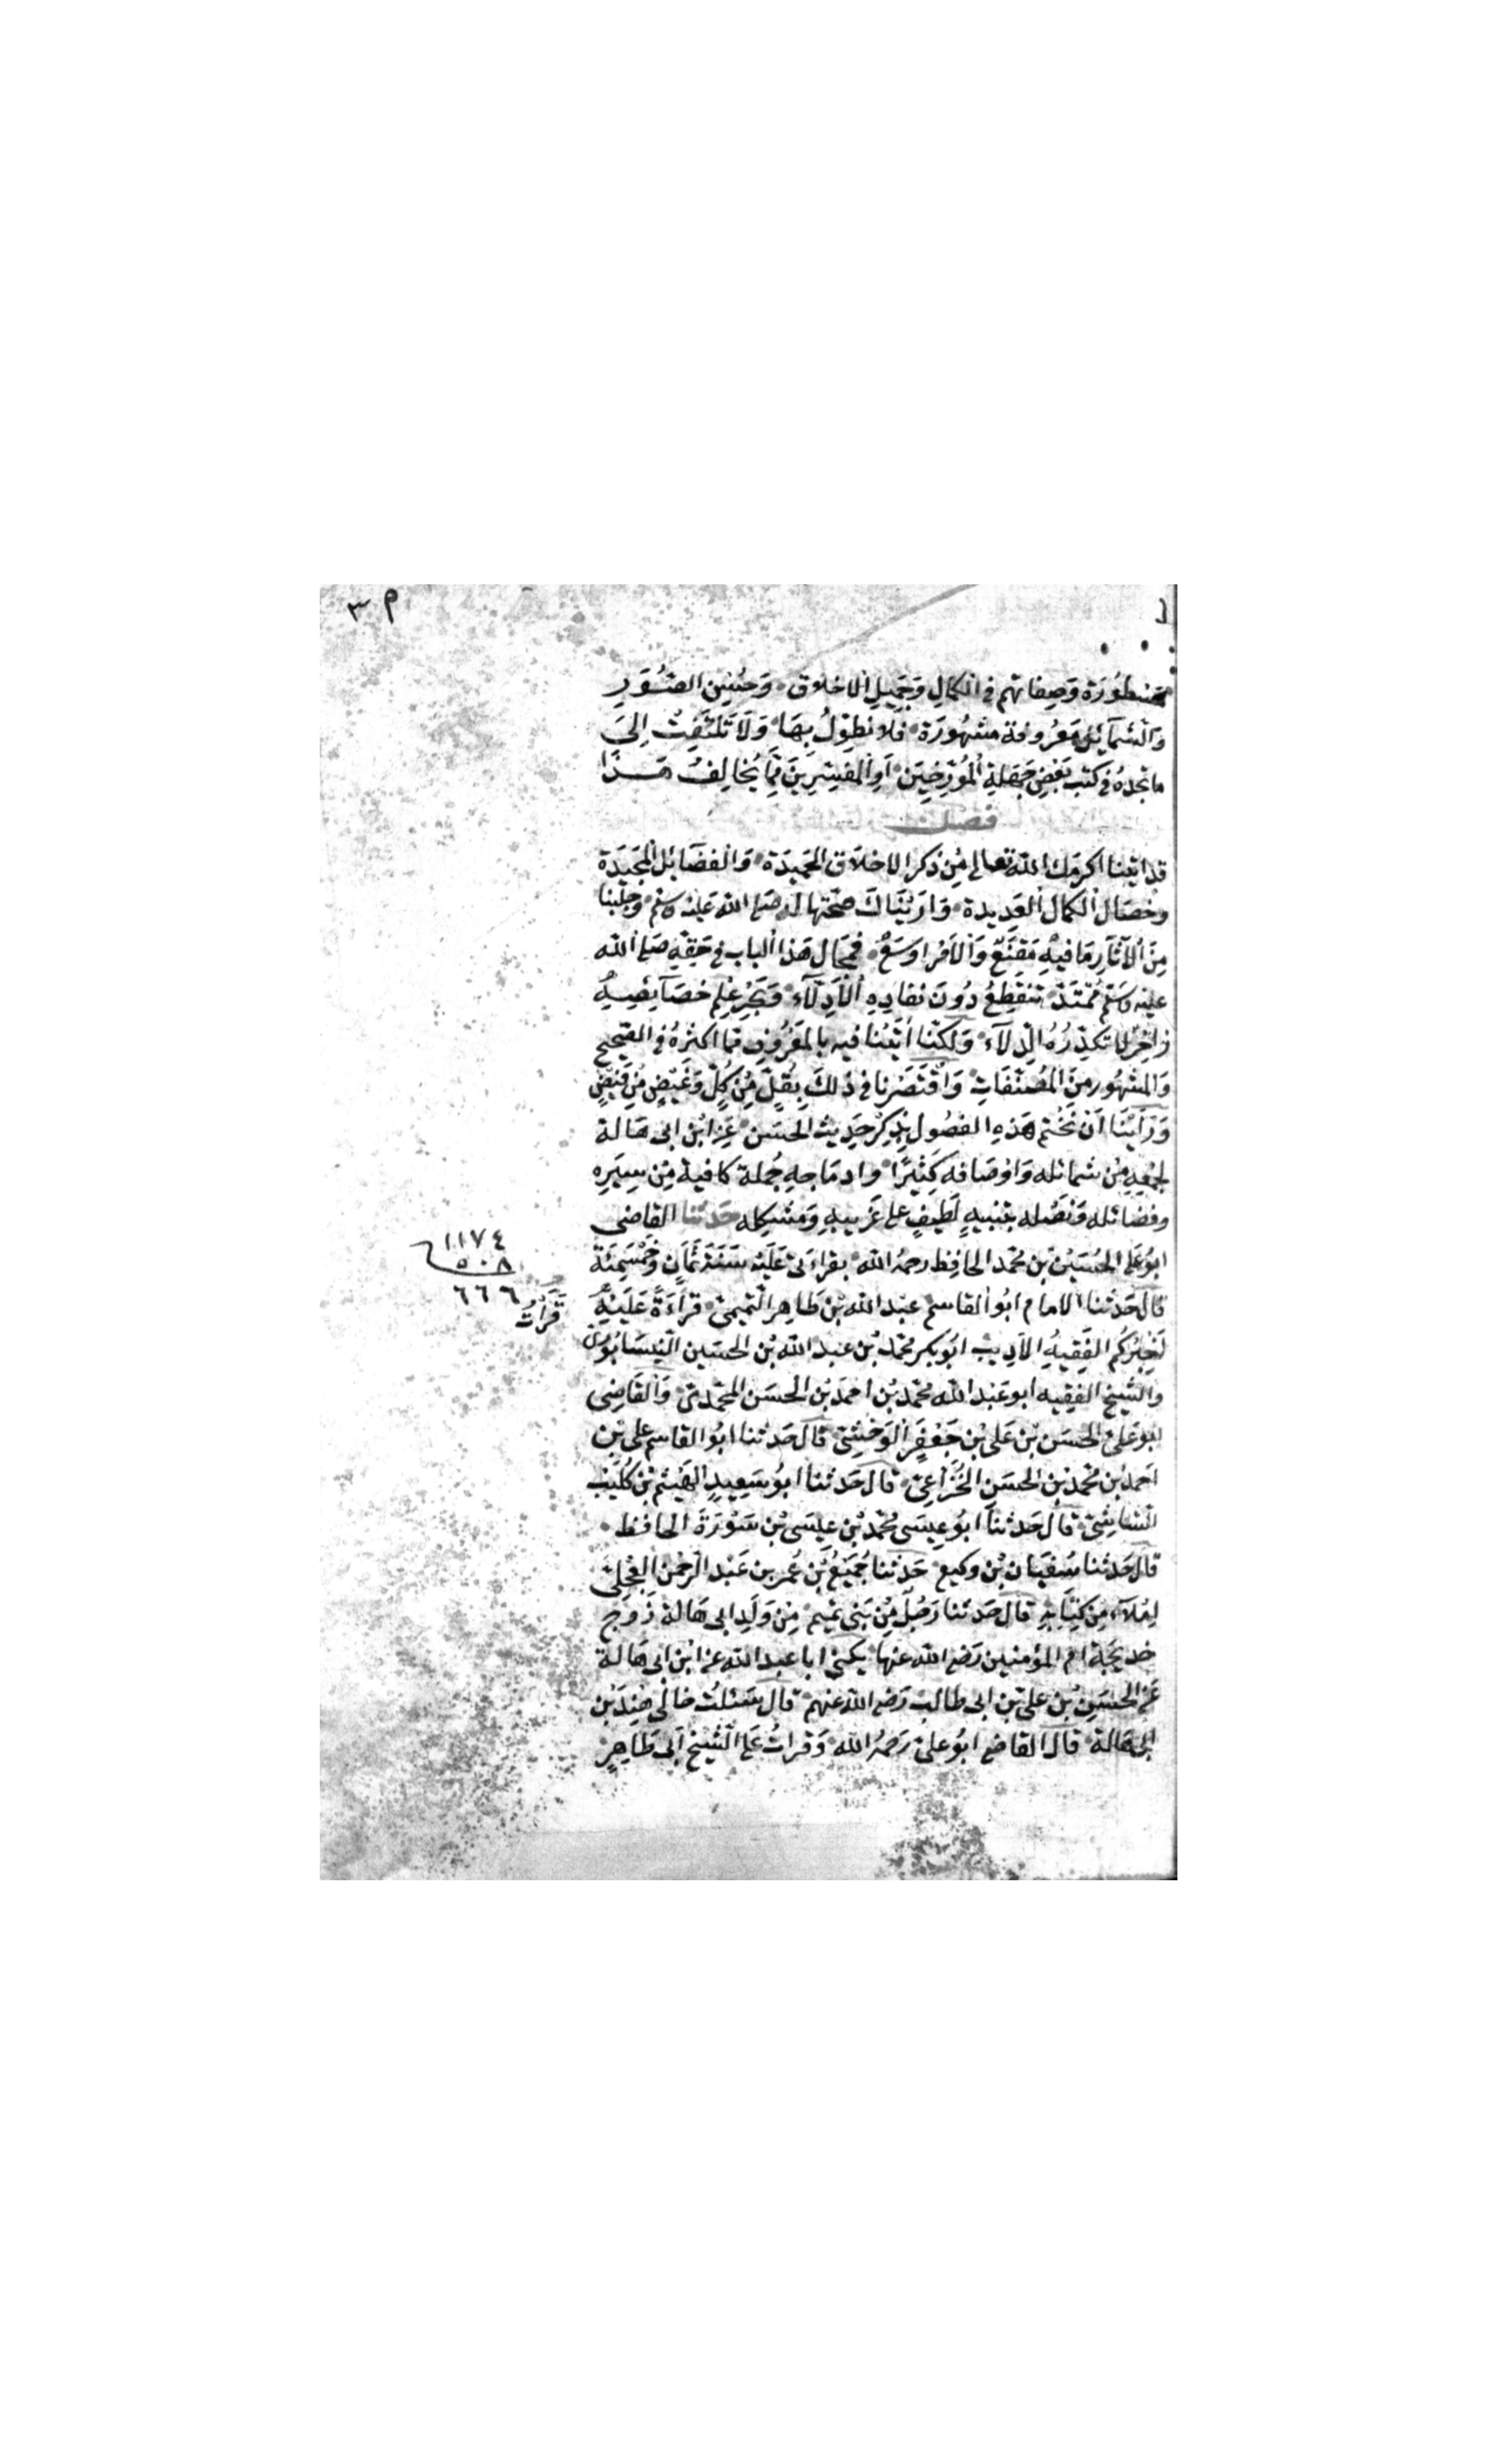 ٣٩
مسطورة وصفاتهم في الكمال وجميل الاخلاق وحسن الصور
والشمائل معروفة مشهورة فلا نطول بها ولا تلتفت الى
ما تجده في كتب بعض جهلة المؤرخين او المفسرين مما يخالف هذا
فصل
قد اتينا اكرمك الله تعالى من ذكر الاخلاق الحميدة والفضائل المجيدة
وخصال الكمال العديدة واريناك صحتها له صلى الله عليه وسلم وجلبنا
من الآثار ما فيه مقنع والامر اوسع فمجال هذا الباب في حقه صلى الله
عليه وسلم ممتد تنقطع دون نفاده الادلاء وبحر علم خصائصه
زاخر لا تكدره الدلاء ولكنا اتينا فيه بالمعروف مما اكثره في الصحيح
والمشهور من المصنفات واقتصرنا في ذلك بقل من كل وغيض من فيض
ورأينا ان نختم هذه الفصول بذكر حديث الحسن عن ابن ابى هالة
لجمعه من شمائله واوصافه كثيرا وادماجه جملة كافية من سيره
وفضائله ونصله بتنبيه لطيف على غريبه ومشكله حدثنا القاضى
ابو على الحسين بن محمد الحافظ رحمه الله بقراءتى عليه سنة ثمان وخمسمئة
قال حدثنا الامام ابو القاسم عبد الله بن طاهر التميمى قراءة عليه
اخبركم الفقيه الاديب ابو بكر محمد بن عبد الله بن الحسين النيسابورى
والشيخ الفقيه ابو عبد الله محمد بن احمد بن الحسن المحمدى والقاضى
ابو على الحسن بن على بن جعفر الوخشى قال حدثنا ابو القاسم على بن
احمد بن محمد بن الحسن الخزاعى قال حدثنا ابو سعيد الهيثم بن كليب
الشاشى قال حدثنا ابو عيسى محمد بن عيسى بن سورة الحافظ
قال حدثنا سفيان بن وكيع حدثنا جميع بن عمر بن عبد الرحمن العجلى
املاء من كتابه قال حدثنا رجل من بنى تميم من ولد ابى هالة زوج
خديجة ام المؤمنين رضى الله عنها يكنى ابا عبد الله عن ابن ابى هالة
عن الحسن بن على بن ابى طالب رضى الله عنهم قال سئلت خالى هند بن
ابى هالة قال القاضى ابو على رحمه الله وقرات على الشيخ ابى طاهر
١١٧٤
٥٠٨
٦٦٦
قرأت